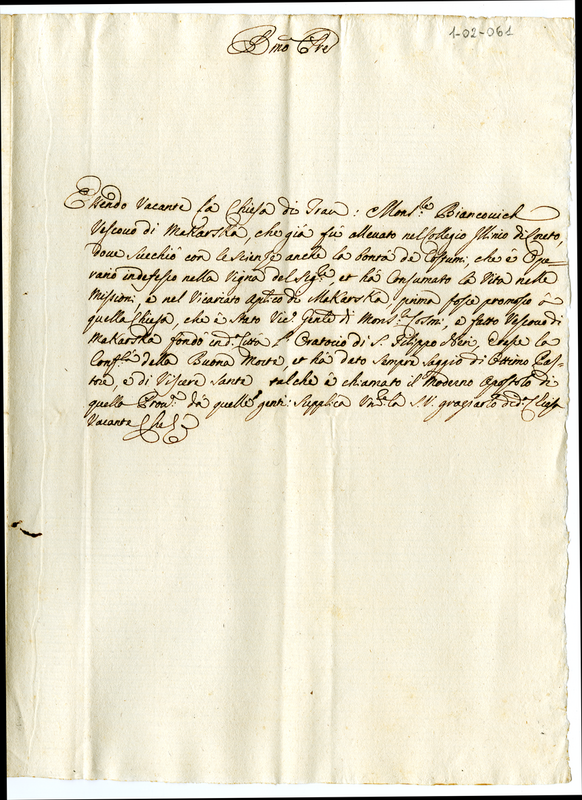 1-02-061
Bmo Pre
Essendo Vacante la Chiesa di Trau: Monsre Biancovich
Vescovo di Makarska, che già fu alleuato nel Collegio Illirico di Loreto,
doue succhiò con le scienze anche la bontà de Costumi, che è Ope-
rario indefesso nella Vigna del Sigre, et hà Consumato la Vita nelle
Missioni, e nel Vicariato Aplico di Makarska prima fosse promosso à
quella Chiesa, che è stato Vico Gente di Monsre Cosmi, e fatto Vescovo di
Makarska fondò in da Città l'Oratorio di S. Filippo Neri, eresse la
Confta della Buona Morte, et hà dato sempre saggio di Ottimo Pas-
tore, e di Viscere Sante talche è chiamato il Moderno Apostolo di
quella Prova da quelle genti: Supplica Vmte la S.V. graziarlo di da Chiesa
Vacante Che